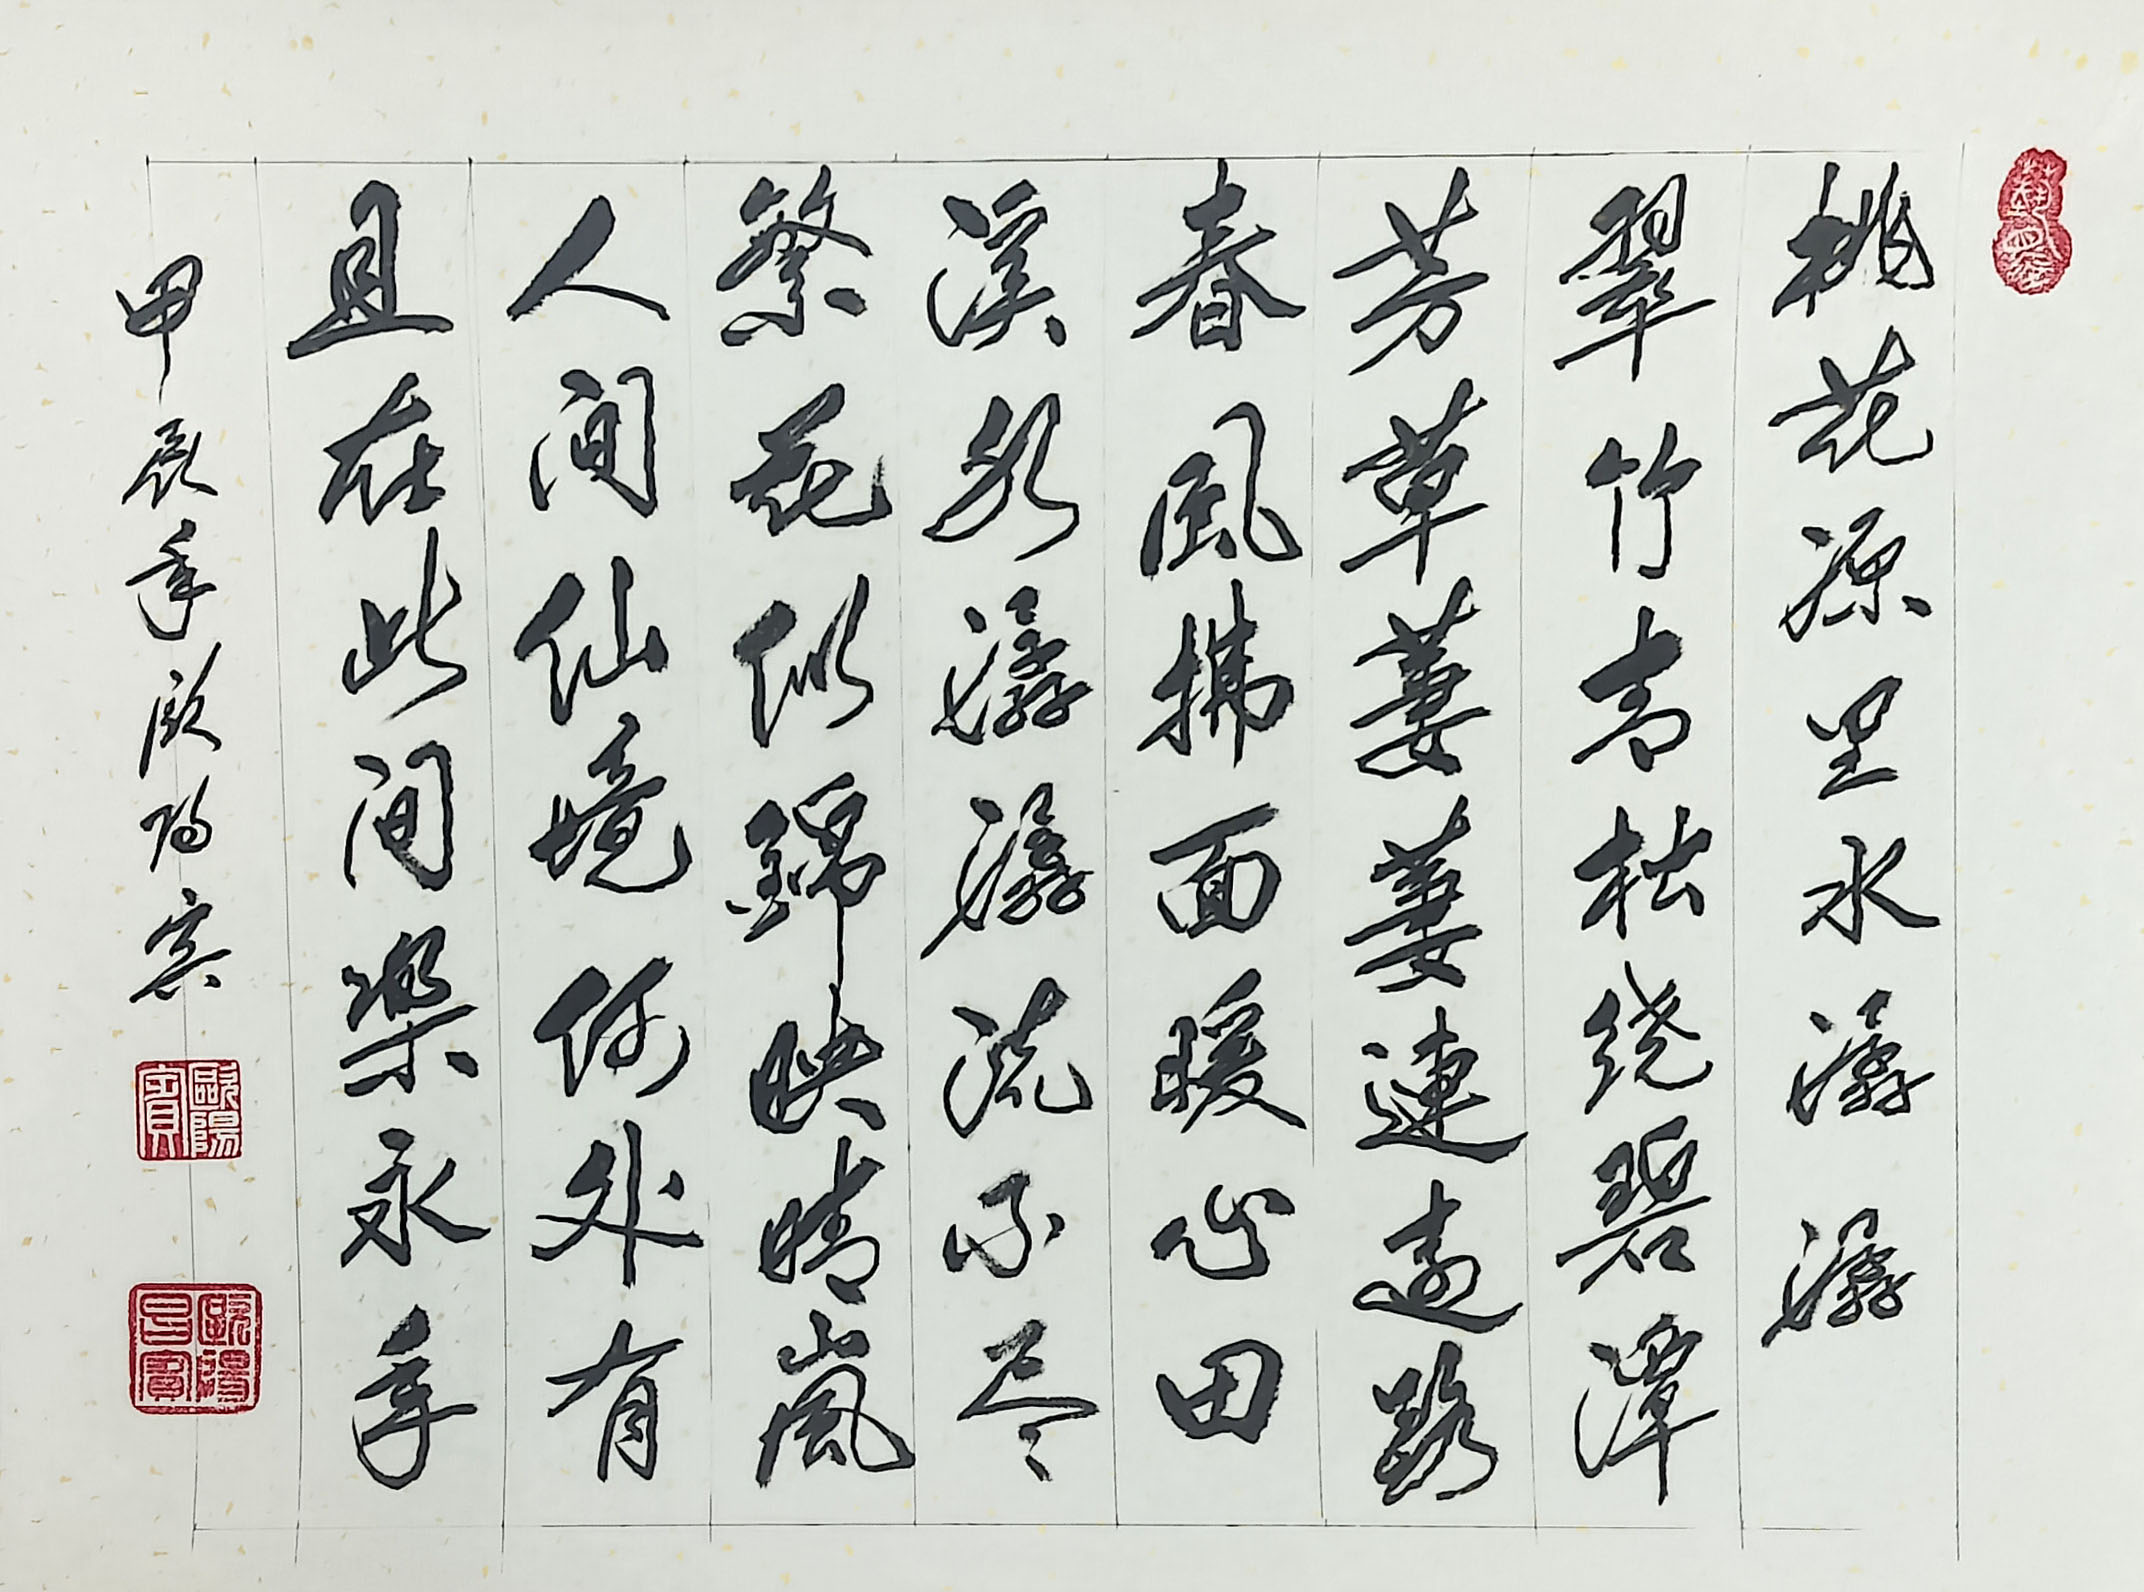 桃花源里水潺潺
翠竹青松绕碧潭
芳草萋萋連遠路
春風拂面暖心田
溪水潺潺流不尽
繁花似錦映晴嵐
人间仙境何处有
且在此间樂永年
甲辰年欧阳宾
歐陽賓